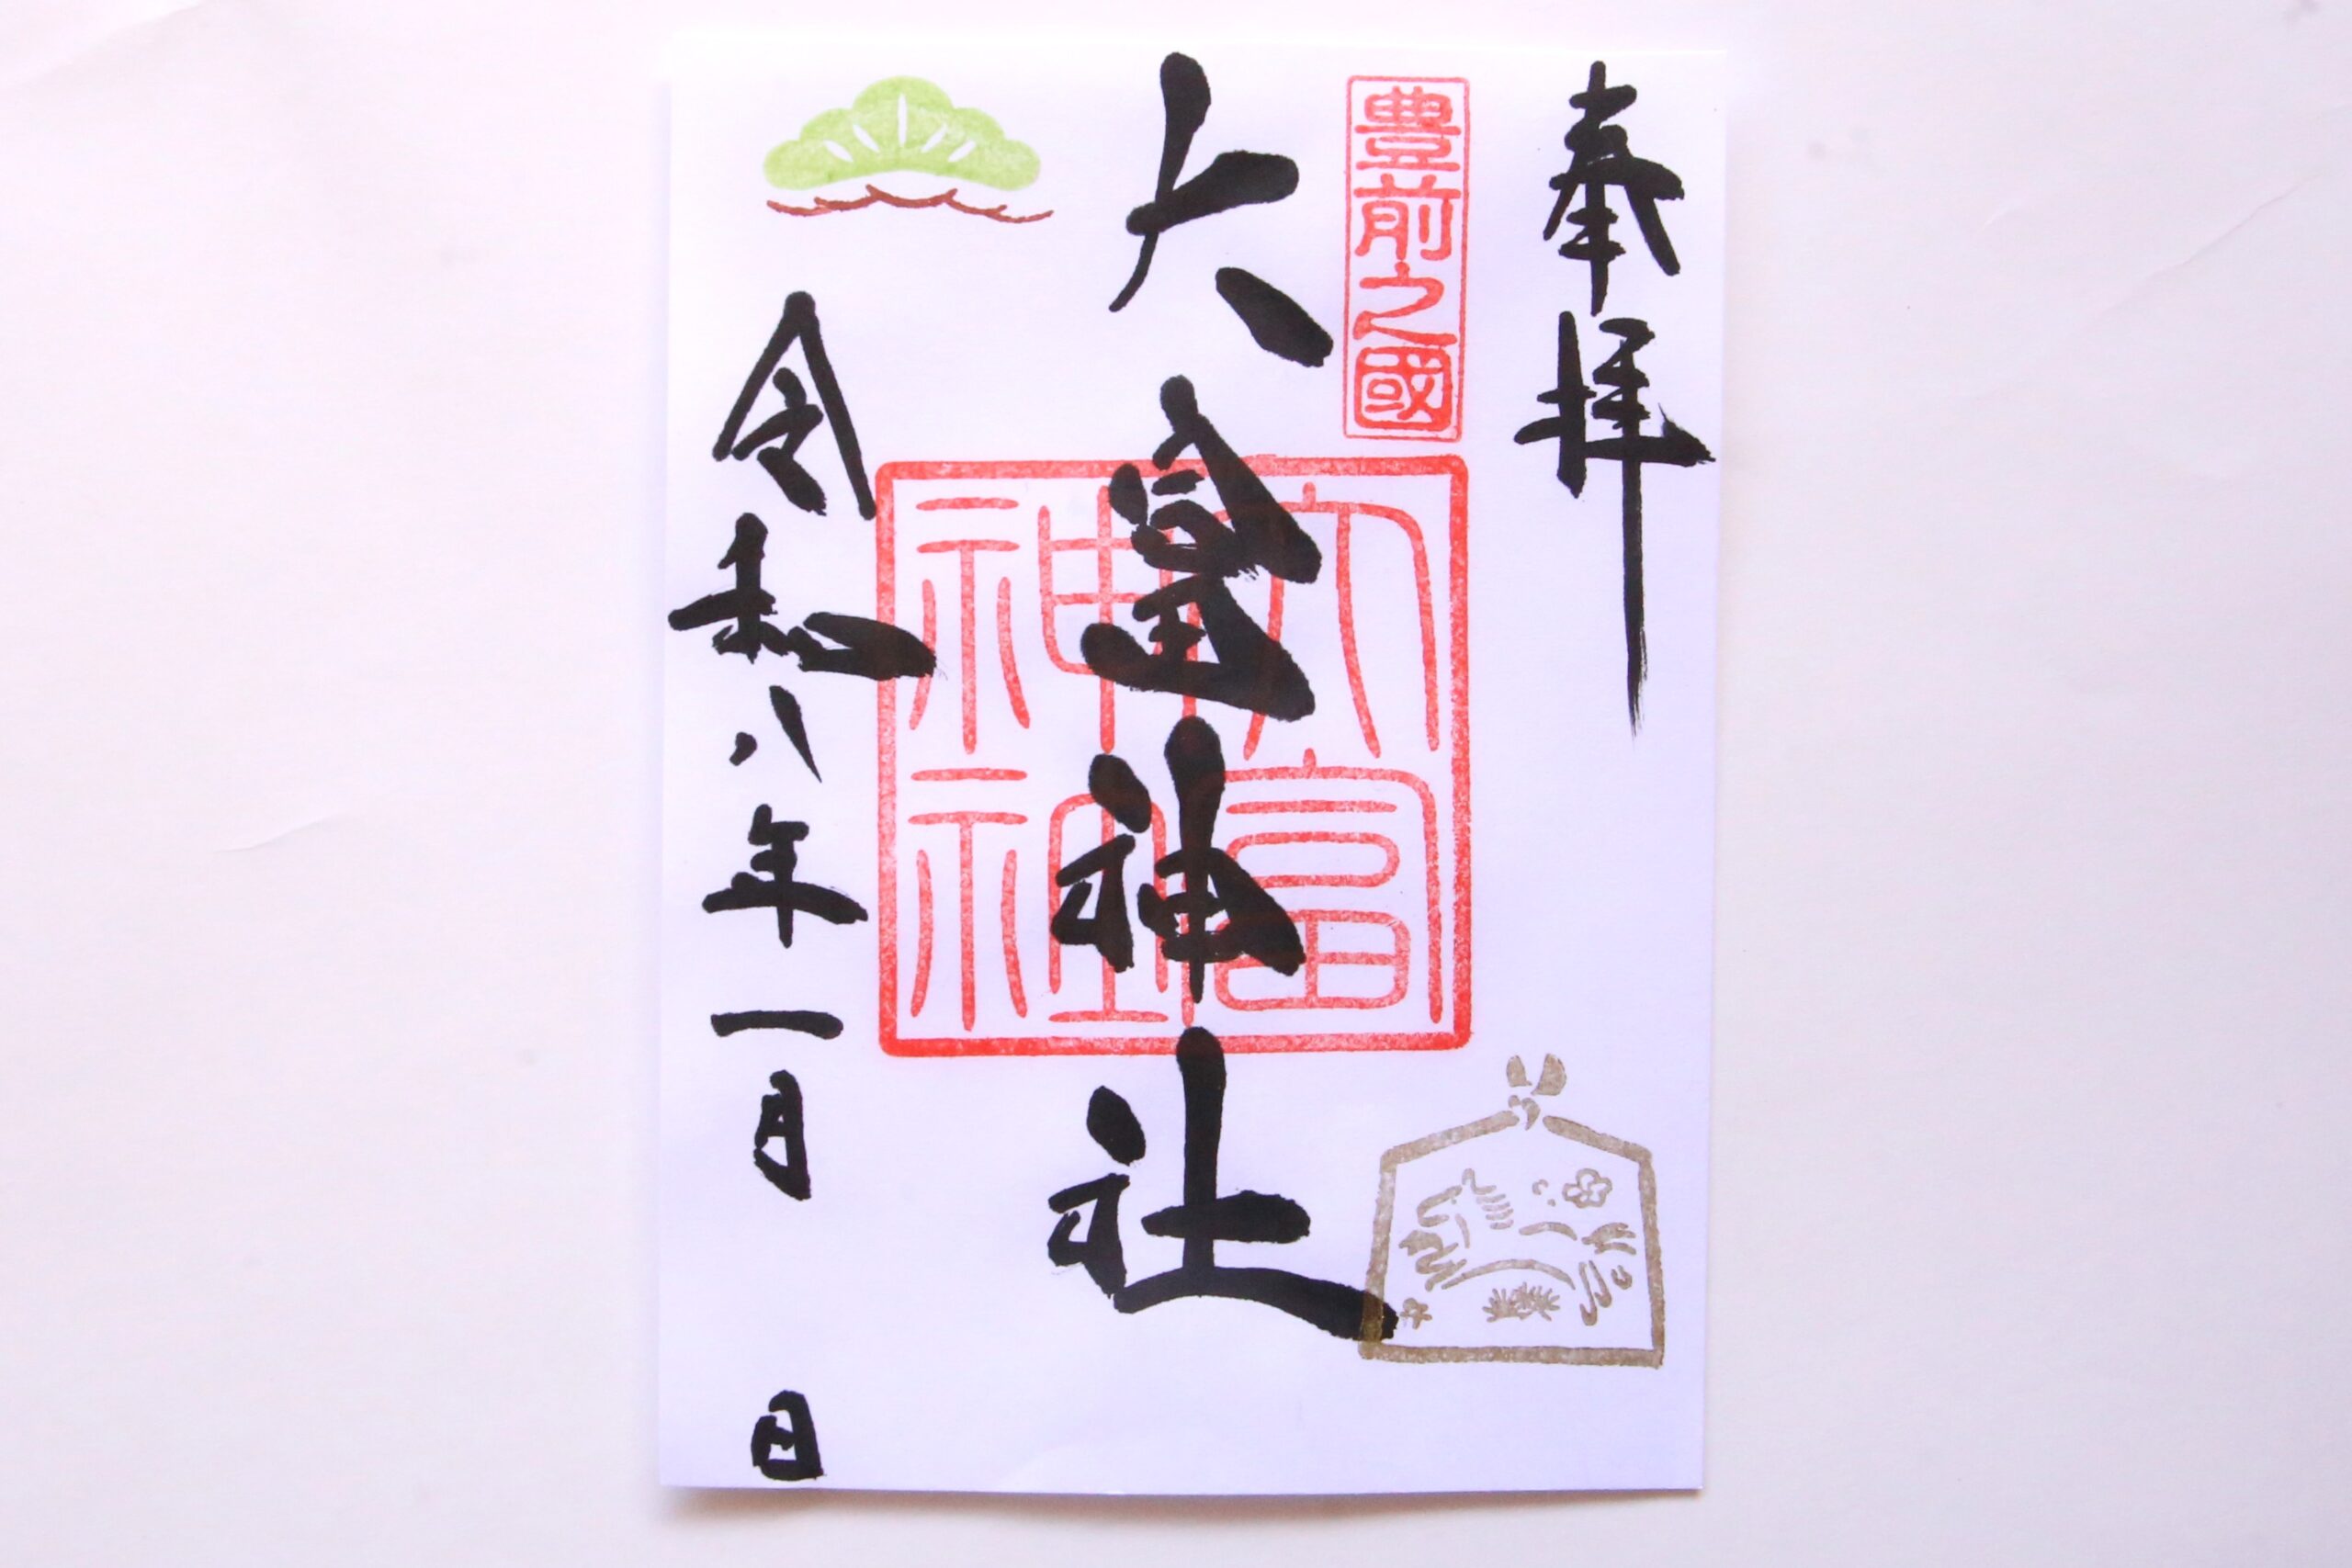 奉拝
豊前之國
大富神社
大富神社
令和八年一月 日